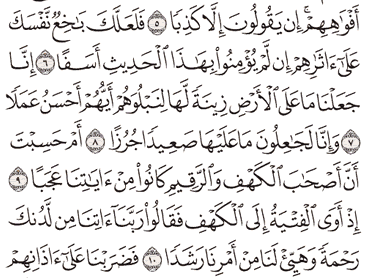 أَفْوَٰهِهِمْ ۚ إِن يَقُولُونَ إِلَّا كَذِبًا ۝٥ فَلَعَلَّكَ بَٰخِعٌ نَّفْسَكَ
عَلَىٰٓ ءَاثَٰرِهِمْ إِن لَّمْ يُؤْمِنُوا۟ بِهَٰذَا ٱلْحَدِيثِ أَسَفًا ۝٦ إِنَّا
جَعَلْنَا مَا عَلَى ٱلْأَرْضِ زِينَةً لَّهَا لِنَبْلُوَهُمْ أَيُّهُمْ أَحْسَنُ عَمَلًا
۝٧ وَإِنَّا لَجَٰعِلُونَ مَا عَلَيْهَا صَعِيدًا جُرُزًا ۝٨ أَمْ حَسِبْتَ
أَنَّ أَصْحَٰبَ ٱلْكَهْفِ وَٱلرَّقِيمِ كَانُوا۟ مِنْ ءَايَٰتِنَا عَجَبًا ۝٩
إِذْ أَوَى ٱلْفِتْيَةُ إِلَى ٱلْكَهْفِ فَقَالُوا۟ رَبَّنَآ ءَاتِنَا مِن لَّدُنكَ
رَحْمَةً وَهَيِّئْ لَنَا مِنْ أَمْرِنَا رَشَدًا ۝١٠ فَضَرَبْنَا عَلَىٰٓ ءَاذَانِهِمْ